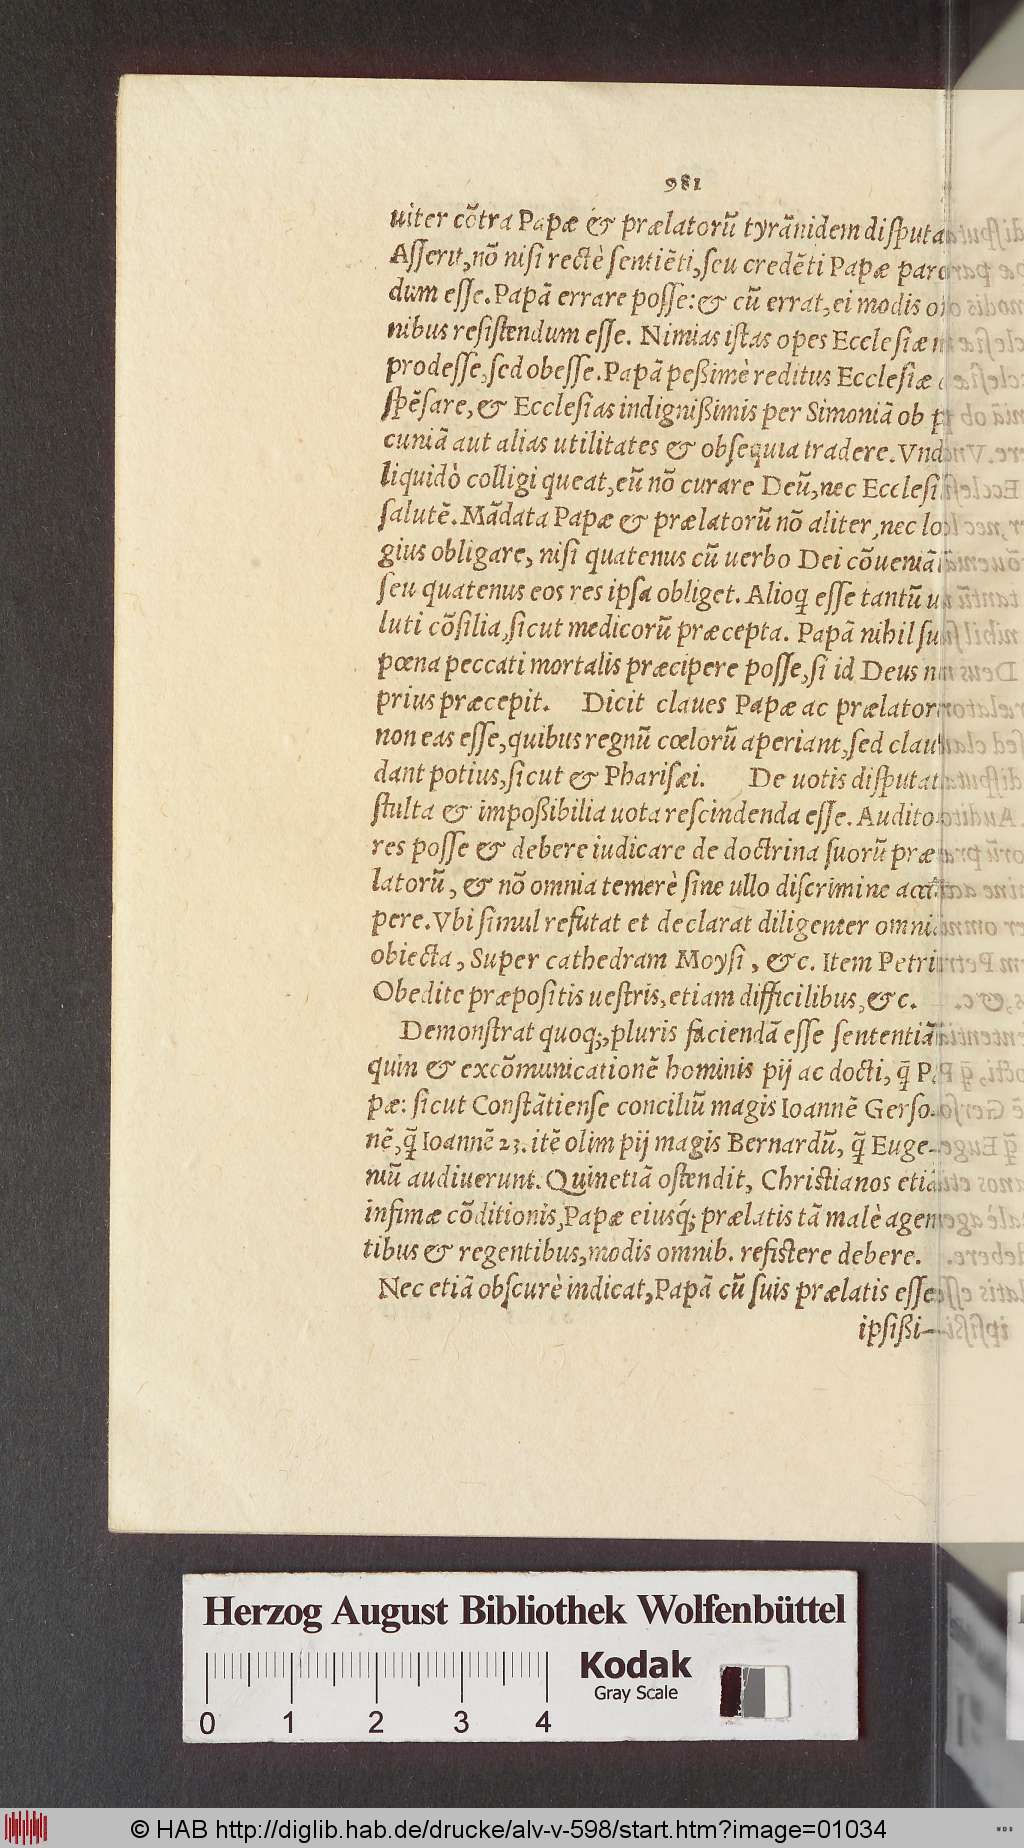 981
uiter cõtra Papæ & prælatorũ tyrãnidem disputa
Asserit, nõ nisi rectè sentiẽti, seu credẽti Papæ
dum esse. Papã errare posse: & cũ errat, ei modis
nibus resistendum esse. Nimias istas opes Ecclesiæ
prodesse, sed obesse. Papã peßimè reditus Ecclesiæ
spẽsare, & Ecclesias indignißimis per Simoniã ob
cuniã aut alias utilitates & obsequia tradere. Vnd
liquidò colligi queat, eũ nõ curare Deũ, nec Ecclesi
salutẽ. Mãdata Papæ & prælatorũ nõ aliter, nec
gius obligare, nisi quatenus cũ uerbo Dei cõueniã
seu quatenus eos res ipsa obliget. Alioq; esse tantũ
luti cõsilia, sicut medicorũ præcepta. Papã nihil
pœna peccati mortalis præcipere posse, si id Deus
prius præcepit. Dicit claues Papæ ac prælator
non eas esse, quibus regnũ cœlorũ aperiant, sed clau
dant potius, sicut & Pharisæi. De uotis disputat
stulta & impoßibilia uota rescindenda esse. Audito-
res posse & debere iudicare de doctrina suorũ præ
latorũ, & nõ omnia temerè sine ullo discrimine
pere. Vbi simul refutat et declarat diligenter omni
obiecta, Super cathedram Moysi, &c. Item Petri
Obedite præpositis uestris, etiam difficilibus, &c.
Demonstrat quoq;, pluris faciendã esse sententiã
quin & excõmunicationẽ hominis pij ac docti, q̃ Pa
pæ: sicut Constãtiense conciliũ magis Ioannẽ Gerso-
nẽ, q̃ Ioannẽ 23. itẽ olim pij magis Bernardũ, q̃ Euge-
niũ audiuerunt. Quinetiã ostendit, Christianos etiã
infimæ cõditionis, Papæ eiusq́; prælatis tã malè agen
tibus & regentibus, modis omnib. resistere debere.
Nec etiã obscurè indicat, Papã cũ suis prælatis esse
ipsißi-
Herzog August Bibliothek Wolfenbüttel
Kodak
Gray Scale
0 1 2 3 4
© HAB http://diglib.hab.de/drucke/alv-v-598/start.htm?image=01034